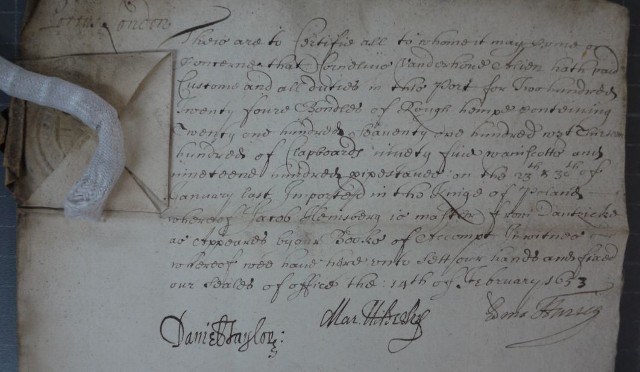 London
These are to Certifie all to whome it may Come
Conserne that Cornelius Vanderhone Alien hath paid
Custome and all duties in this Port for Two hundred
Twenty foure Bondles of Rough hempe conteining
Twenty one hundred seaventy one hundred
hundred of Clapboards ninety five wainscotts and
nineteene hundred pipestaves on the 23th & 30th of
January last Imported in the Kinge of Poland
whereof Jacob is master from Dantzicke
as Appeares by our Books of Accompt Witnes
whereof wee have here unto sett our hands and
our Seales of office the 14th of February 1653
Daniel Taylor:
Edm Harvey